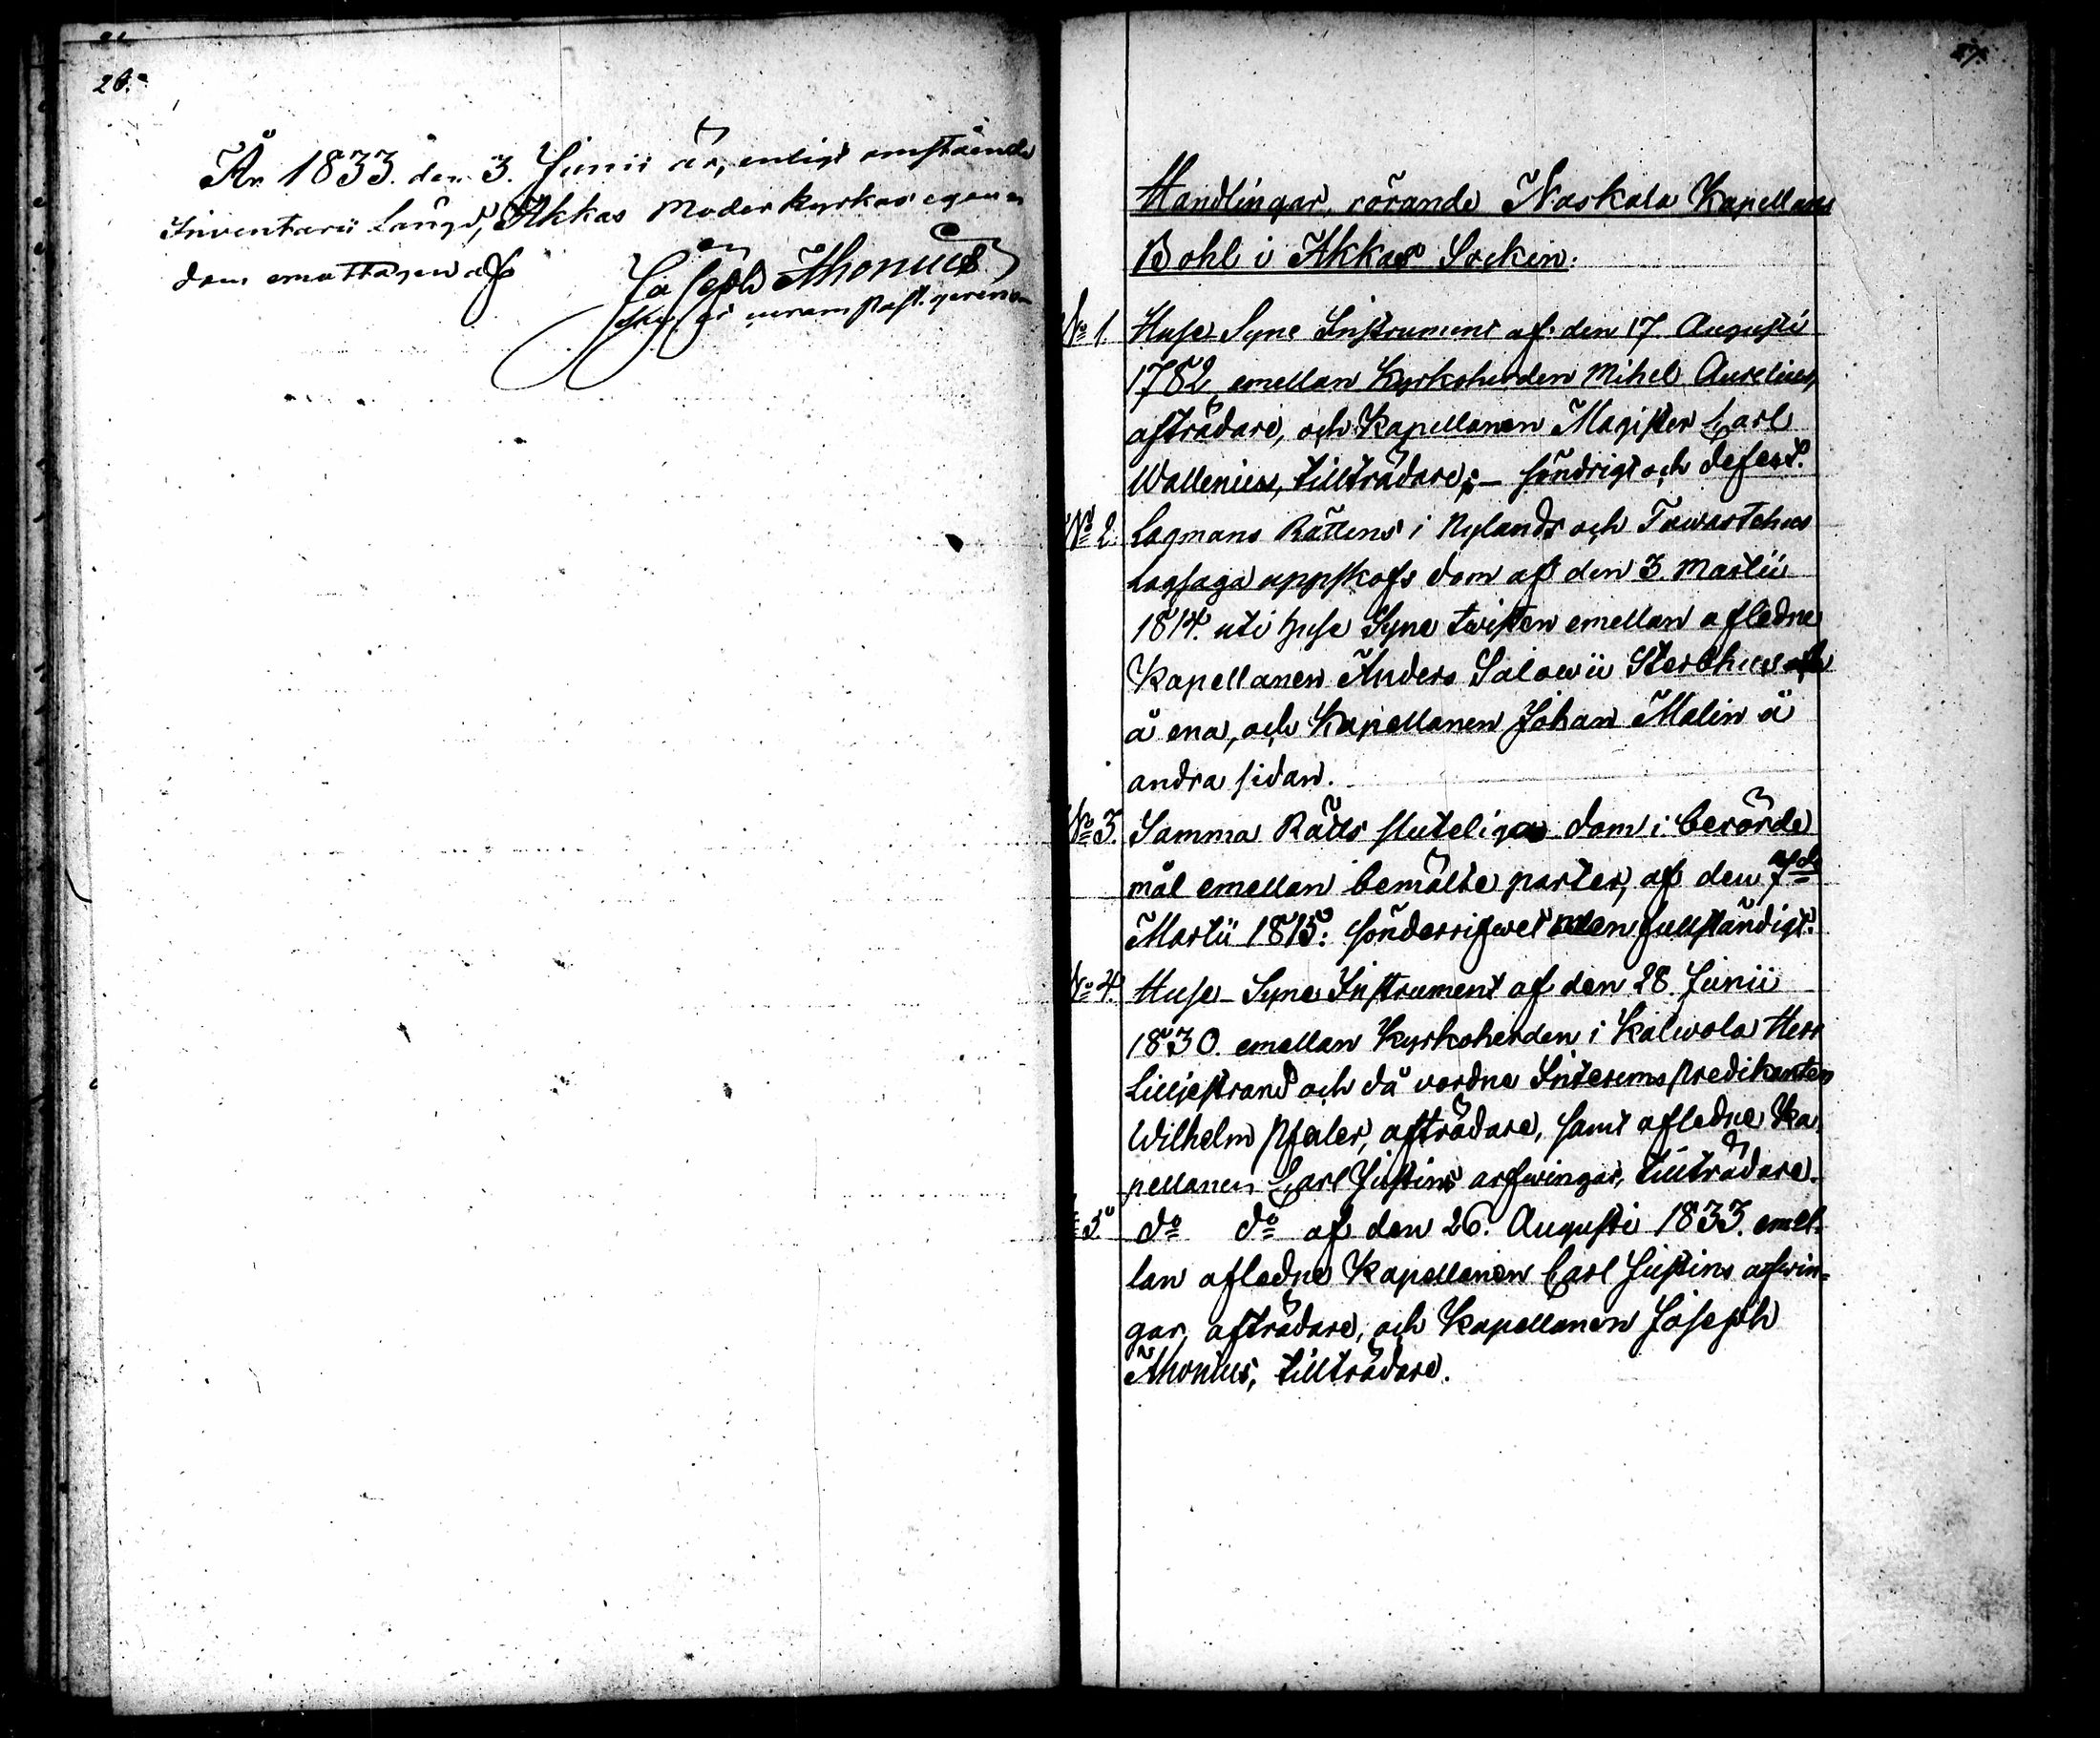 26.
År 1833. den 3. Junii är, enligt omstående
Inventarii Längd, Akkas Moder kyrkas egen-
dom emottagen af
Joseph Ahonius
27.
Handlingar, rörande Naskala Kapellans
Bohl i Akkas Socken.
No 1. Huse Syne Instrument af den 17 Augusti
1782, emellan Kyrkoherden Mihel Aurelius,
afträdare, och Kapellanen Magister Carl
Wallenius, tillträdare; – söndrigt och defect.
No 2. Lagmans Rättens i Nylands och Tawastehus
Lagsaga uppskofs dom af den 3. Martii
1814. uti huse Syne twisten emellan afledne
Kapellanen Anders Salowii Sterbhus
å ena, och Kapellanen Johan Malin å
andra sidan.
No 3. Samma Rätts slutelige dom i berörde
mål emellan bemälte parter, af den 7de
Martii 1815: sönderrifwet men fullständigt.
No 4. Huse-Syne Instrument af den 28. Junii
1830. emellan Kyrkoherden i Kalwola Herr
Liljestrand och då vordne Interims predikanten
Wilhelm Pfaler, afträdare, samt afledne Ka
pellanen Carl Justins arfwingar, tillträdare.
5. do do af den 26. Augusti 1833. emel-
lan afledne Kapellanen Carl Justins arfwin-
gar, afträdare, och Kapellanen Joseph
Ahonius, tillträdare.